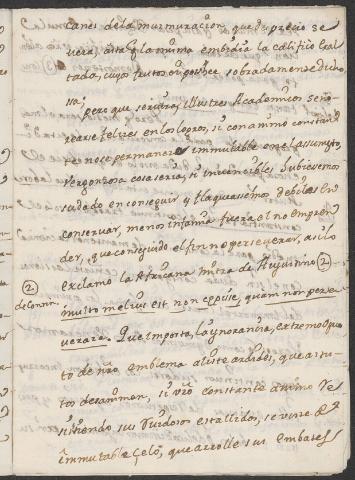 canes de la murmuracion, que su precio se
vera, aun q̃ la misma embidia la califico Exal
tada, cuyos frutos oy goza sobradamente dicho
sa; pero que servira, Illustres Academicos seño
rearse felizes en los logros, si con animo constan
te no se permanece immutable en el assumpto,
vergonzosa cosa seria, si invencibles hubiesemos
sudado en conseguir y flaqueasemos debiles en
conservar, menos infamia fuera el no empren
der, que conseguido el fin no perseverar, asi lo
exclamo la Africana Mitra de Augustino ②
②
de Contin.
multo melius est non cepisse, quam non perse
verare. Que importa, la ygnorancia, extremo opues
to de nr̃o emblema aliste ardides, que astu
tos desanimen, si vr̃o constante animo re
sistiendo sus ruidosos estallidos, se viste de
immutable zelo, que arrolle sus embates